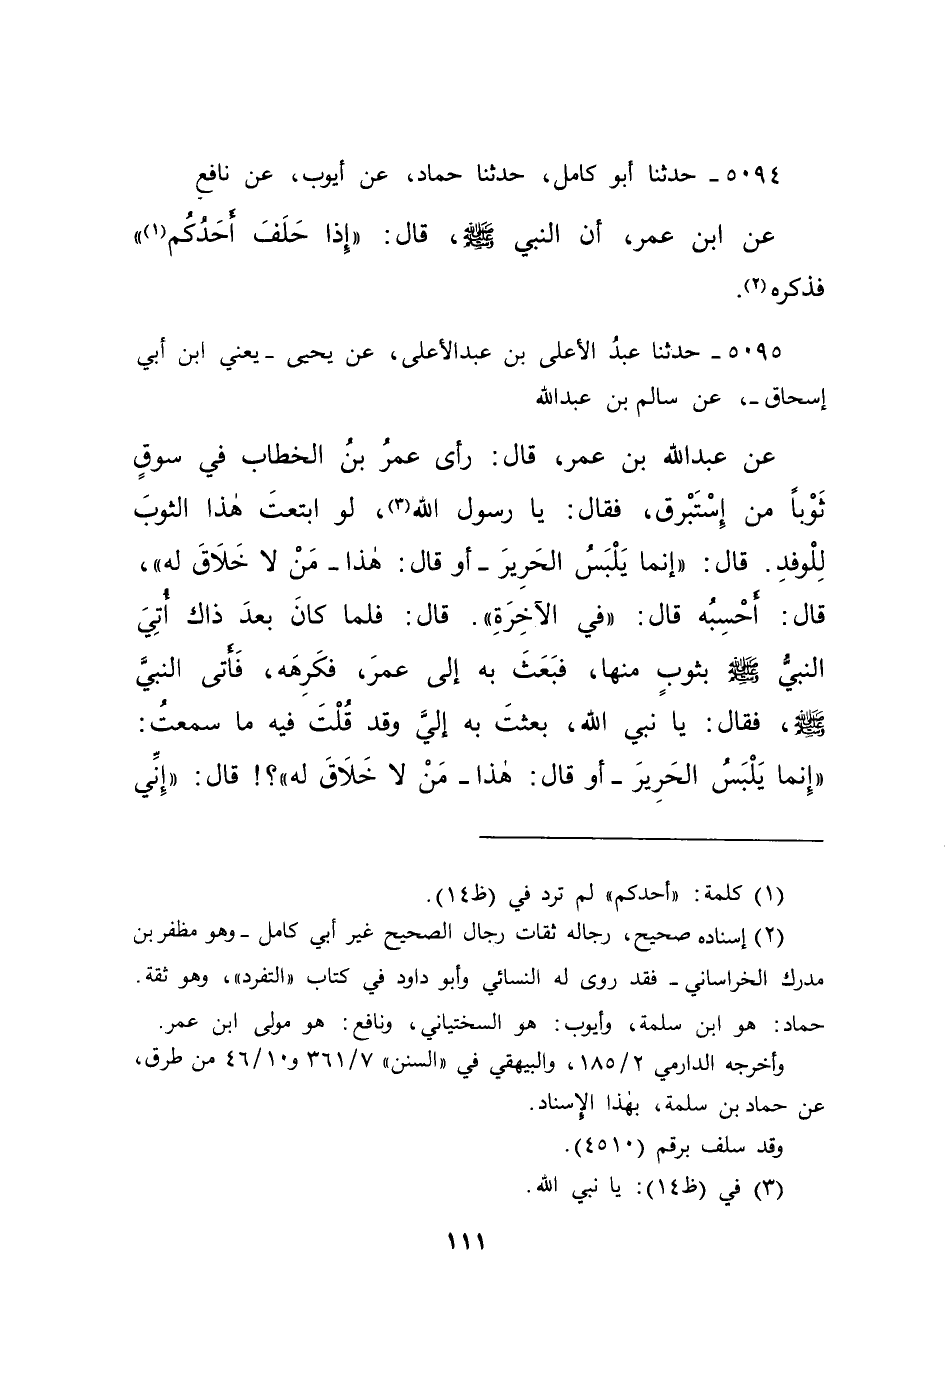 ٥٠٩٤ ـ حدثنا أبو كامل، حدثنا حماد، عن أيوب، عن نافع
عن ابن عمر، أن النبي ﷺ، قال: «إِذا حَلَفَ أَحَدُكُم(١)»
فذكره(٢).
٥٠٩٥ ـ حدثنا عبدُ الأعلى بن عبدالأعلى، عن يحيى ـ يعني ابن أبي
إسحاق ـ، عن سالم بن عبدالله
عن عبدالله بن عمر، قال: رأى عمرُ بنُ الخطاب في سوقٍ
ثَوْباً من إِسْتَبْرق، فقال: يا رسول الله(٣)، لو ابتعتَ هٰذا الثوبَ
لِلْوفدِ. قال: «إنما يَلْبَسُ الحَرِيرَ ـ أو قال: هٰذا ـ مَنْ لا خَلَاقَ له»،
قال: أَحْسِبُه قال: «في الآخِرَةِ». قال: فلما كانَ بعدَ ذاك أُتِيَ
النبيُّ ﷺ بثوبٍ منها، فبَعَثَ به إلى عمرَ، فكَرِهَه، فَأَتى النبيَّ
ﷺ، فقال: يا نبي الله، بعثتَ به إليَّ وقد قُلْتَ فيه ما سمعتُ:
«إِنما يَلْبَسُ الحَرِيرَ ـ أو قال: هٰذا ـ مَنْ لا خَلَاقَ له»؟! قال: «إِنِّي
(١) كلمة: «أحدكم» لم ترد في (ظ١٤).
(٢) إسناده صحيح، رجاله ثقات رجال الصحيح غير أبي كامل ـ وهو مظفر بن
مدرك الخراساني ـ فقد روى له النسائي وأبو داود في كتاب «التفرد»، وهو ثقة.
حماد: هو ابن سلمة، وأيوب: هو السختياني، ونافع: هو مولى ابن عمر.
وأخرجه الدارمي ١٨٥/٢، والبيهقي في «السنن» ٣٦١/٧ و٤٦/١٠ من طرق،
عن حماد بن سلمة، بهٰذا الإِسناد.
وقد سلف برقم (٤٥١٠).
(٣) في (ظ١٤): يا نبي الله.
١١١